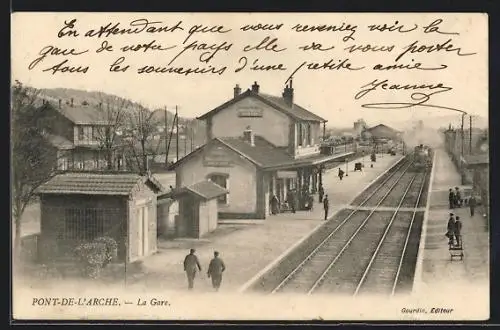 En attendant que vous reveniez voir la
gare de votre pays elle va vous porter
tous les souvenirs d'une petite amie
Jeanne
PONT-DE-L'ARCHE. — La Gare.
Gourdin, Éditeur